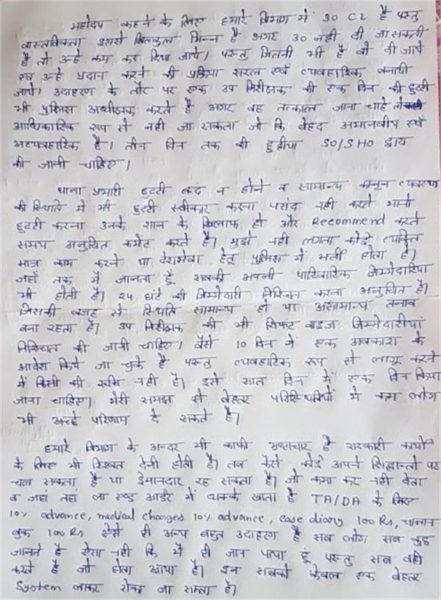 महोदय कहने के लिए हमारे विभाग में 30 CL है परन्तु
वास्तविकता इससे बिल्कुल भिन्न है अगर 30 नहीं दी जा सकती
है तो उन्हें कम कर दिया जाये। परन्तु जितनी भी है वो दी जाये
एवं उन्हें प्रदान करने की प्रक्रिया सरल एवं व्यवहारिक बनायी
जाये। उदाहरण के तौर पर एक उप निरीक्षक की एक दिन की छुट्टी
भी पुलिस अधीक्षक करते है अगर वह तत्काल जाना चाहे तो
आधिकारिक रूप से नहीं जा सकता जो कि बेहद अमानवीय एवं
अव्यवहारिक है। तीन दिन तक की छुट्टीयां SO/SHO द्वारा
की जानी चाहिए।
थाना प्रभारी छुट्टी बन्द न होने व सामान्य कानून व्यवस्था
की स्थिति में भी छुट्टी स्वीकार करना पसंद नहीं करते मानो
छुट्टी करना उनके शान के खिलाफ हो और Recommend करते
समय अनुचित कमेंट करते है। मुझे नहीं लगता कोई व्यक्ति
मात्र काम करने या देशसेवा हेतु पुलिस में भर्ती होता है।
जहाँ तक मैं जानता हूँ सबकी अपनी पारिवारिक जिम्मेदारियां
भी होती है। 24 घंटे की जिम्मेदारी निश्चित करना अनुचित है।
जिसकी वजह से स्थिति सामान्य हो या असामान्य तनाव
बना रहता है। उप निरीक्षक की भी शिफ्ट वाइज जिम्मेदारीयां
निश्चित की जानी चाहिए। वैसे 10 दिन में एक अवकाश के
आदेश किये जा चुके है परन्तु व्यवहारिक रूप से लागू करने
में किसी की रूचि नहीं है। इसे सात दिन में एक दिन किया
जाना चाहिए। मेरी समझ से बेहतर परिस्थितियों में कम लोग
भी अच्छे परिणाम दे सकते है।
हमारे विभाग के अन्दर भी काफी भ्रष्टाचार है सरकारी कार्यो
के लिए भी रिश्वत देनी होती है। तब कैसे कोई अपने सिद्धान्तों पर
चल सकता है या ईमानदार रह सकता है। जो क्या कर नहीं लेता
व जहां तहां ला एण्ड आर्डर में धक्के खाता है TA/DA के लिए
10% advance, medical charges 10% advance, case diary 100 Rs, चालान
बुक 100 Rs ऐसे ही अन्य बहुत उदाहरण है सब लोग सब कुछ
जानते है ऐसा नहीं कि मैं ही जान पाया हूँ परन्तु सब वही
करते है जो होता आया है। इन सबको केवल एक बेहतर
System लाकर रोका जा सकता है।